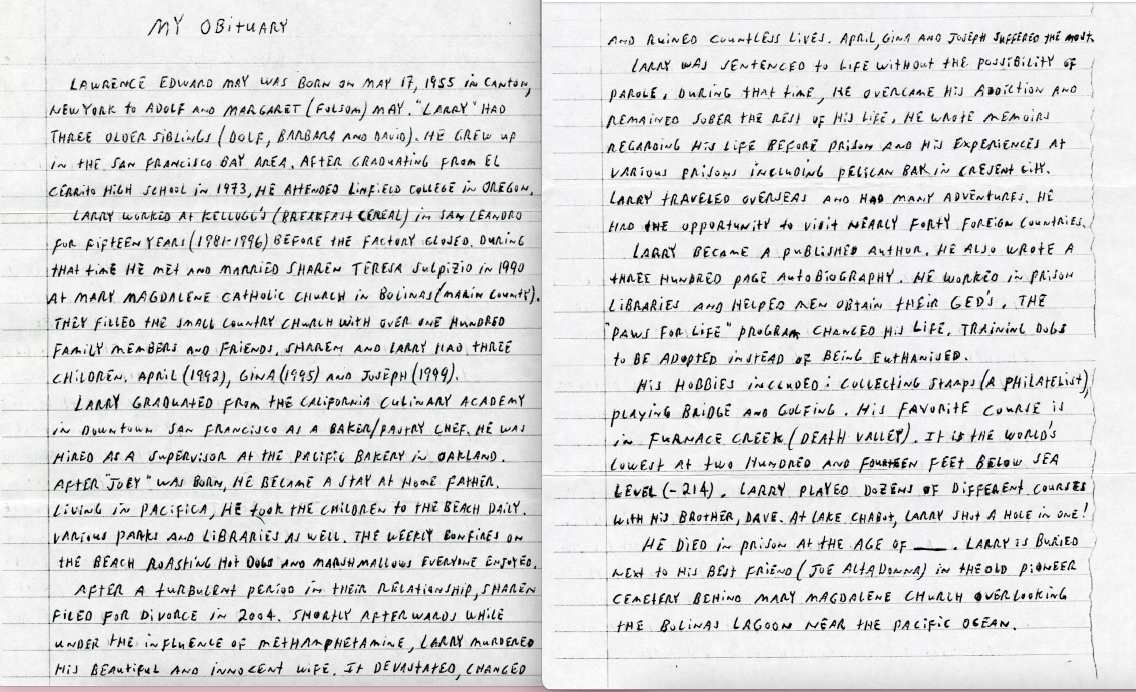 MY OBITUARY
LAWRENCE EDWARD MAY WAS BORN ON MAY 17, 1955 IN CANTON,
NEW YORK TO ADOLF AND MARGARET (FOLSOM) MAY. "LARRY" HAD
THREE OLDER SIBLINGS (DOLF, BARBARA AND DAVID). HE GREW UP
IN THE SAN FRANCISCO BAY AREA. AFTER GRADUATING FROM EL
CERRITO HIGH SCHOOL IN 1973, HE ATTENDED LINFIELD COLLEGE IN OREGON.
LARRY WORKED AT KELLOGG'S (BREAKFAST CEREAL) IN SAN LEANDRO
FOR FIFTEEN YEARS (1981-1996) BEFORE THE FACTORY CLOSED. DURING
THAT TIME HE MET AND MARRIED SHAREN TERESA SULPIZIO IN 1990
AT MARY MAGDALENE CATHOLIC CHURCH IN BOLINAS (MARIN COUNTY).
THEY FILLED THE SMALL COUNTRY CHURCH WITH OVER ONE HUNDRED
FAMILY MEMBERS AND FRIENDS. SHAREN AND LARRY HAD THREE
CHILDREN. APRIL (1992), GINA (1995) AND JOSEPH (1999).
LARRY GRADUATED FROM THE CALIFORNIA CULINARY ACADEMY
IN DOWNTOWN SAN FRANCISCO AS A BAKER/PASTRY CHEF. HE WAS
HIRED AS A SUPERVISOR AT THE PACIFIC BAKERY IN OAKLAND.
AFTER "JOEY" WAS BORN, HE BECAME A STAY AT HOME FATHER.
LIVING IN PACIFICA, HE TOOK THE CHILDREN TO THE BEACH DAILY.
VARIOUS PARKS AND LIBRARIES AS WELL. THE WEEKLY BONFIRES ON
THE BEACH ROASTING HOT DOGS AND MARSHMALLOWS EVERYONE ENJOYED.
AFTER A TURBULENT PERIOD IN THEIR RELATIONSHIP, SHAREN
FILED FOR DIVORCE IN 2004. SHORTLY AFTERWARDS WHILE
UNDER THE INFLUENCE OF METHAMPHETAMINE, LARRY MURDERED
HIS BEAUTIFUL AND INNOCENT WIFE. IT DEVASTATED, CHANGED
AND RUINED COUNTLESS LIVES. APRIL, GINA AND JOSEPH SUFFERED THE MOST.
LARRY WAS SENTENCED TO LIFE WITHOUT THE POSSIBILITY OF
PAROLE. DURING THAT TIME, HE OVERCAME HIS ADDICTION AND
REMAINED SOBER THE REST OF HIS LIFE. HE WROTE MEMOIRS
REGARDING HIS LIFE BEFORE PRISON AND HIS EXPERIENCES AT
VARIOUS PRISONS INCLUDING PELICAN BAY IN CRESENT CITY.
LARRY TRAVELED OVERSEAS AND HAD MANY ADVENTURES. HE
HAD THE OPPORTUNITY TO VISIT NEARLY FORTY FOREIGN COUNTRIES.
LARRY BECAME A PUBLISHED AUTHOR. HE ALSO WROTE A
THREE HUNDRED PAGE AUTOBIOGRAPHY. HE WORKED IN PRISON
LIBRARIES AND HELPED MEN OBTAIN THEIR GED'S. THE
"PAWS FOR LIFE" PROGRAM CHANGED HIS LIFE. TRAINING DOGS
TO BE ADOPTED INSTEAD OF BEING EUTHANISED.
HIS HOBBIES INCLUDED: COLLECTING STAMPS (A PHILATELIST),
PLAYING BRIDGE AND GOLFING. HIS FAVORITE COURSE IS
IN FURNACE CREEK (DEATH VALLEY). IT IS THE WORLD'S
LOWEST AT TWO HUNDRED AND FOURTEEN FEET BELOW SEA
LEVEL (-214). LARRY PLAYED DOZENS OF DIFFERENT COURSES
WITH HIS BROTHER, DAVE. AT LAKE CHABOT, LARRY SHOT A HOLE IN ONE!
HE DIED IN PRISON AT THE AGE OF ___. LARRY IS BURIED
NEXT TO HIS BEST FRIEND (JOE ALTADONNA) IN THE OLD PIONEER
CEMETERY BEHIND MARY MAGDALENE CHURCH OVERLOOKING
THE BOLINAS LAGOON NEAR THE PACIFIC OCEAN.